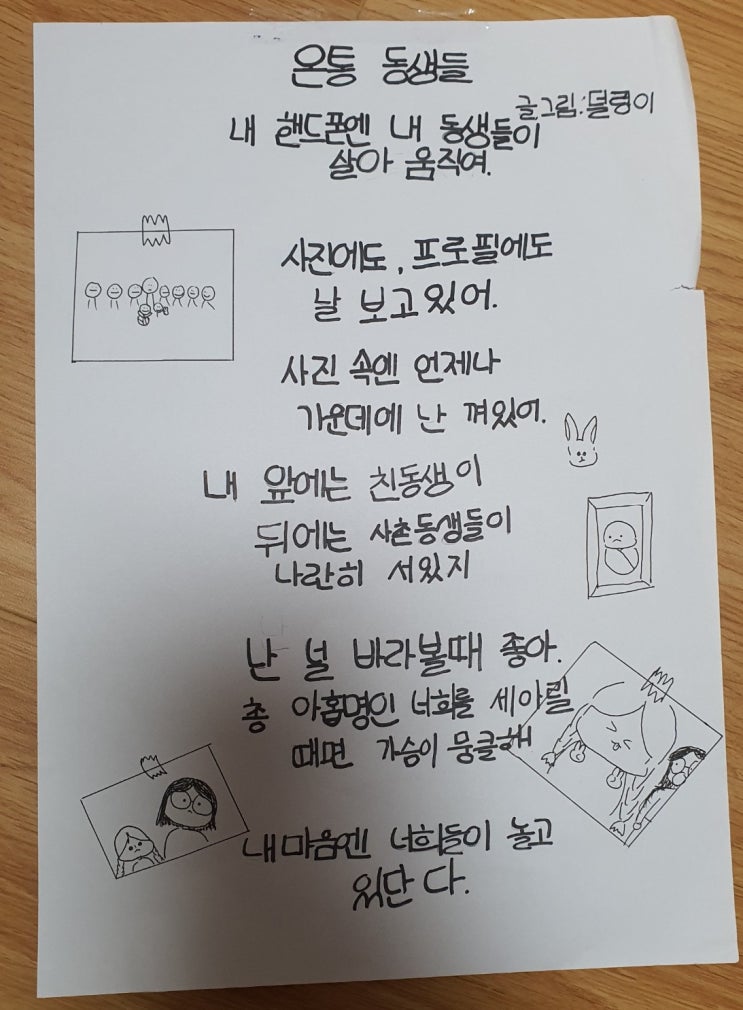 온통 동생들
글그림:덜렁이
내 핸드폰엔 내 동생들이
살아 움직여.
사진에도, 프로필에도
날 보고있어.
사진 속엔 언제나
가운데에 난 껴있어.
내 앞에는 친동생이
뒤에는 사촌동생들이
나란히 서있지
난 널 바라볼때 좋아.
총 아홉명인 너희를 세아릴
때면 가슴이 뭉클해
내마음엔 너희들이 놀고
있단다.